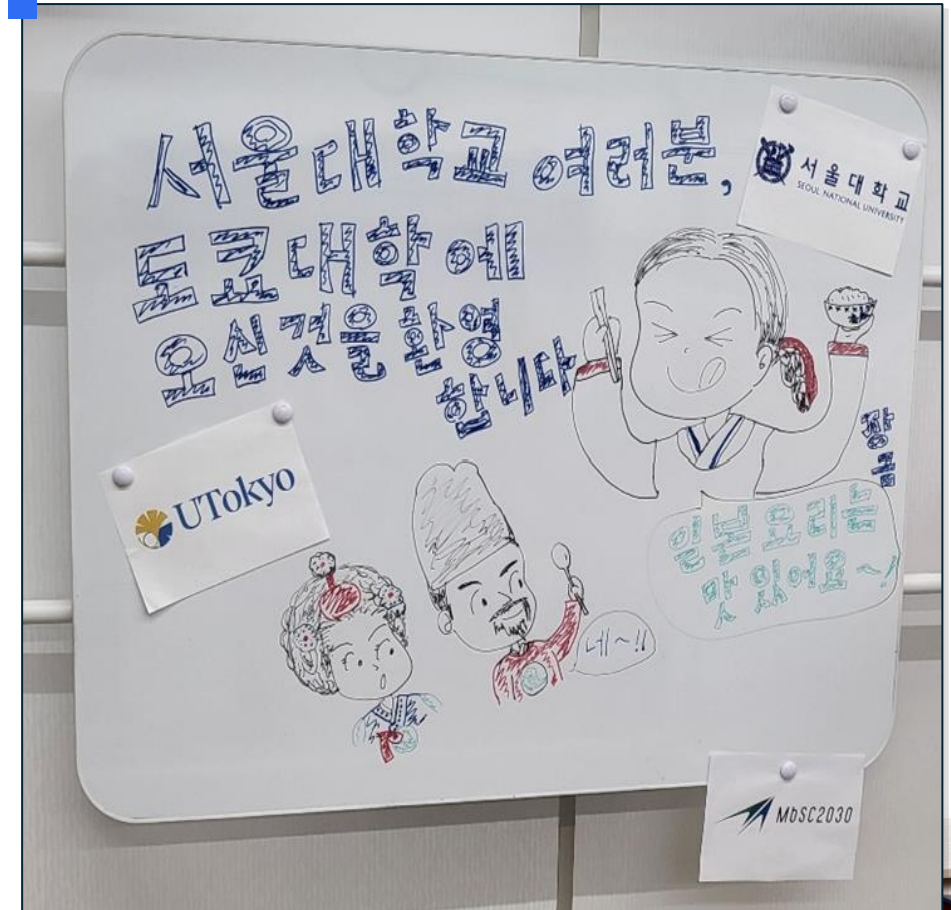 서울대학교 여러분,
도쿄대학에
오신것을 환영
합니다
서울대학교
SEOUL NATIONAL UNIVERSITY
장금
일본 요리는
맛있어요~!
UTokyo
네~!!
MbSC2030